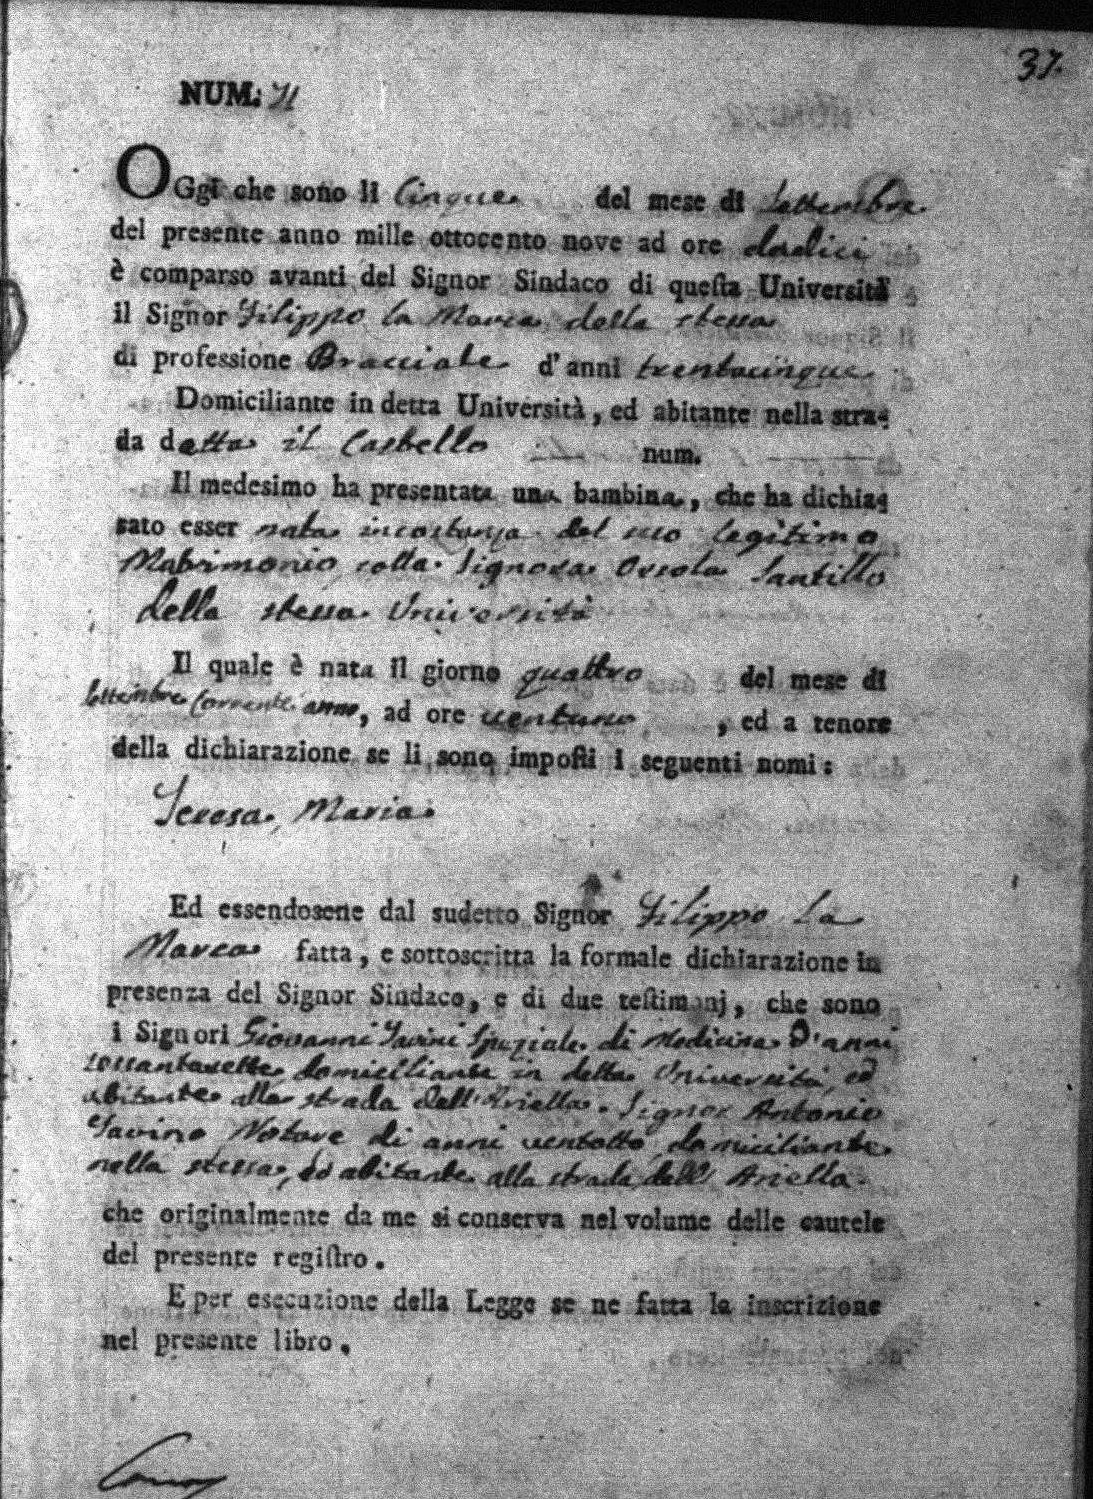 37.
NUM. 71
OGgi che sono li Cinque del mese di Settembre
del presente anno mille ottocento nove ad ore dodici
è comparso avanti del Signor Sindaco di questa Università
il Signor Filippo la Marca della stessa
di professione Bracciale d'anni trentacinque
Domiciliante in detta Università, ed abitante nella stra-
da detta il Castello num.
Il medesimo ha presentata una bambina, che ha dichia-
rato esser nata incostanza del suo legitimo
Matrimonio colla Signora Orsola Santillo
della stessa Università
Il quale è nata il giorno quattro del mese di
Settembre Corrente anno, ad ore ventuno, ed a tenore
della dichiarazione se li sono imposti i seguenti nomi:
Teresa, Maria
Ed essendosene dal sudetto Signor Filippo La
Marca fatta, e sottoscritta la formale dichiarazione in
presenza del Signor Sindaco, e di due testimonj, che sono
i Signori Giovanni Speziale di Medicina d'anni
sessantasette domiciliante in detta Università, ed
abitante alla strada dell'Ariella. Signor Antonio
Savino Notare di anni ventotto domiciliante
nella stessa, ed abitante alla strada dell' Ariella.
che originalmente da me si conserva nel volume delle cautele
del presente registro.
E per esecuzione della Legge se ne fatta la inscrizione
nel presente libro.